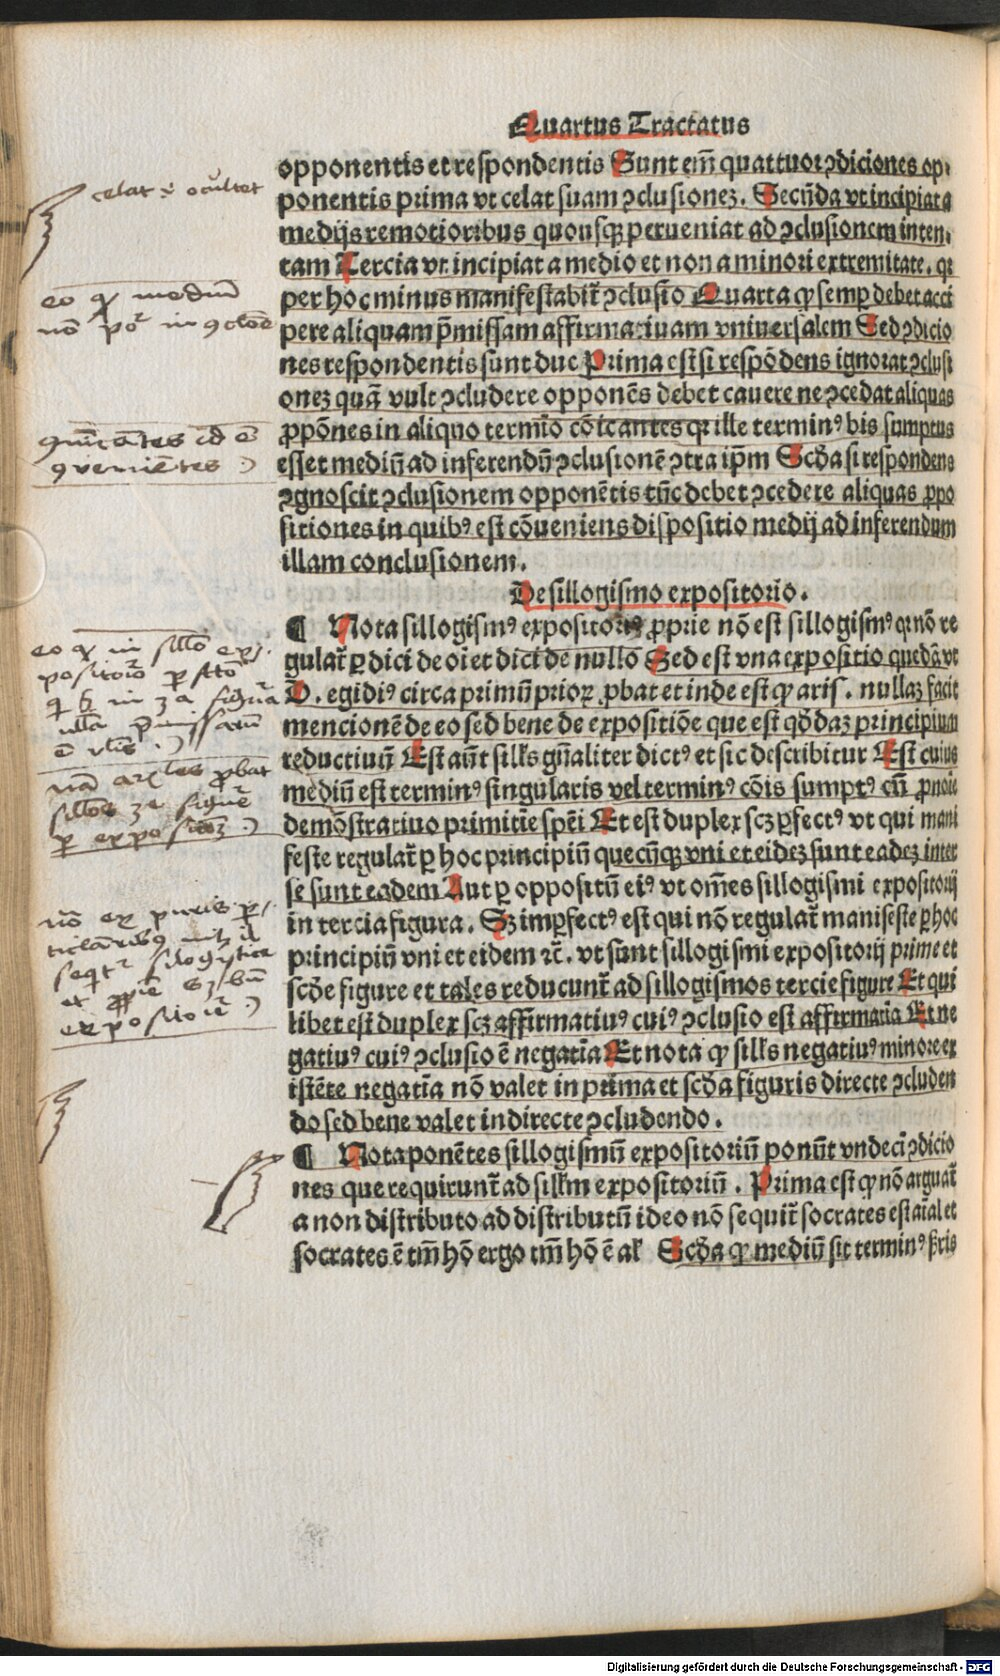 Quartus Tractatus
opponentis et respondentis Sunt em̄ quattuor ꝯdiciones op⸗
ponentis prima vt celat suam ꝯclusionez. Secūda vt incipiat a
medijs remotioribus quousqꝫ perueniat ad ꝯclusionem inten⸗
tam Tercia vt incipiat a medio et non a minori extremitate. qꝛ
per hoc minus manifestabit̄ ꝯclusio Quarta ꝙ semꝑ debet acci
pere aliquam p̄missam affirmatiuam vniuersalem Sed ꝯdicio
nes respondentis sunt due Prima est si respōdens ignorat ꝯclusi
onez quā vult ꝯcludere opponēs debet cauere ne ꝯcedat aliquas
ꝓpōnes in aliquo termīo cōicantes qꝛ ille terminꝰ bis sumptus
esset mediū ad inferendū ꝯclusionē ꝯtra ip̄m Scd̄a si respondens
ꝯgnoscit ꝯclusionem opponētis tūc debet ꝯcedere aliquas ꝓpo
sitiones in quibꝰ est cōueniens dispositio medij ad inferendum
illam conclusionem.
De sillogismo expositorio.
¶ Nota sillogismꝰ expositoriꝰ ꝓprie nō est sillogismꝰ qꝛ nō re
gulat̄ ꝑ dici de oī et dici de nullo Sed est vna expositio quedā vt
D. egidiꝰ circa primū prioꝝ ꝓbat et inde est ꝙ aris. nullaz facit
mencionē de eo sed bene de expositiōe que est qd̄daz principium
reductiuū Est aūt sill̄s gn̄aliter dictꝰ et sic describitur Est cuius
mediū est terminꝰ singularis vel terminꝰ cōis sumptꝰ cū ꝓnoīe
demōstratiuo primitīe spēi Et est duplex scꝫ ꝑfectꝰ vt qui mani
feste regulat̄ ꝑ hoc principiū quecūqꝫ vni et eidez sunt eadez inter
se sunt eadem Aut ꝑ oppositū eiꝰ vt om̄es sillogismi expositorij
in tercia figura. Sꝫ imꝑfectꝰ est qui nō regulat̄ manifeste ꝑ hoc
principiū vni et eidem ⁊c̄. vt sunt sillogismi expositorij prime et
scd̄e figure et tales reducunt̄ ad sillogismos tercie figure Et qui
libet est duplex scꝫ affirmatiuꝰ cuiꝰ ꝯclusio est affirmatīa Et ne
gatiuꝰ cuiꝰ ꝯclusio ē negatīa Et nota ꝙ sill̄s negatiuꝰ minore ex
istēte negatīa nō valet in prima et scd̄a figuris directe ꝯcluden
do sed bene valet indirecte ꝯcludendo.
¶ Nota ponētes sillogismū expositoriū ponūt vndeci ꝯdicio
nes que requirunt̄ ad sill̄m expositoriū. Prima est ꝙ nō arguat̄
a non distributo ad distributū ideo nō sequit̄ socrates est aīal et
socrates ē tm̄ hō ergo tm̄ hō ē al̄ Scd̄a ꝙ mediū sit terminꝰ
celat ocultet
eo ꝙ mediū
nō in ꝯcl̄oē
id ē
ꝯueniētes
eo ꝙ in
in 3a figura
nō ex puris
Digitalisierung gefördert durch die Deutsche Forschungsgemeinschaft - DFG